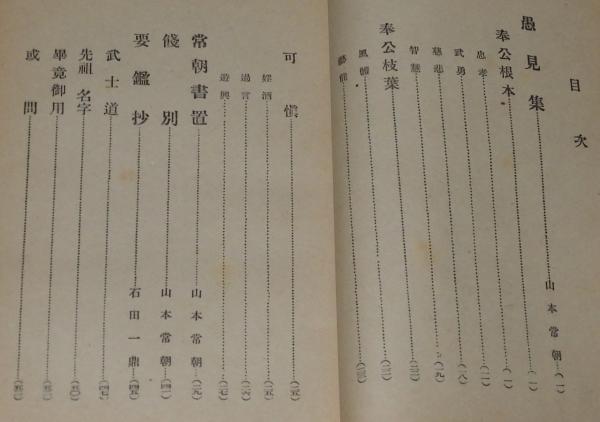 目次
愚見集 山本常朝 (一)
奉公根本 (一)
忠孝 (一一)
武勇 (一八)
慈悲 (一九)
智慧 (二二)
奉公枝葉
風體
藝能
可愼 (二五)
婬酒 (二五)
過言 (二六)
遊興 (二七)
常朝書置 山本常朝 (二九)
餞別 山本常朝 (四一)
要鑑抄 石田一鼎 (四五)
武士道 (四七)
先祖名字 (五〇)
畢竟御用
或問